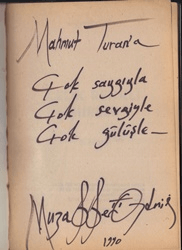 Mahmut Turan'a
Çok saygıyla
Çok sevgiyle
Çok gülüşle
Muzaffer
1990